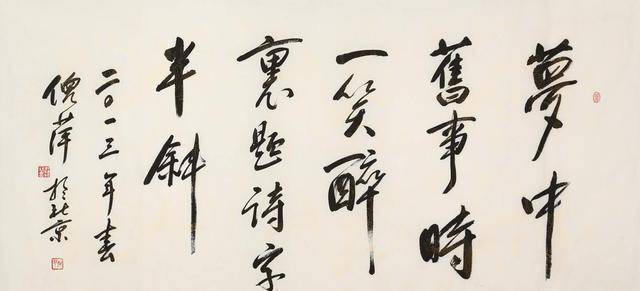 夢中
舊事時
一笑醉
裏題詩字
半斜
二〇一三年春
倪萍於北京